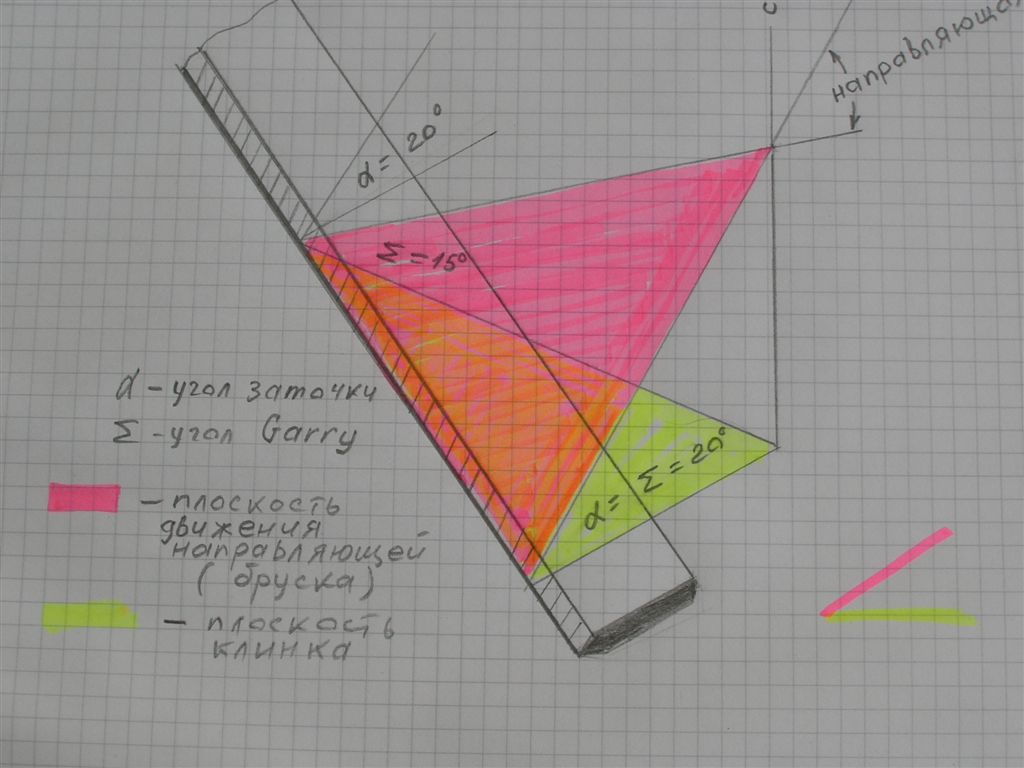 с
направляющая
α = 20°
Σ = 15°
α - угол заточки
Σ - угол Garry
α = Σ = 20°
- плоскость
движения
направляющей
( бруска )
- плоскость
клинка